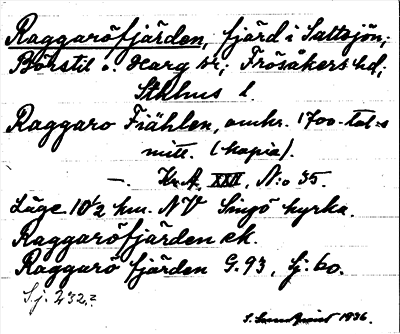 Raggaröfjärden, fjärd i Saltsjön;
Börstil o. Harg sr; Frösåkers hd;
Sthlms l.
Raggaro Fiählen, omkr. 1700-tal=s
mitt. (kopia).
—. Kr.A. XXII, N:o 35.
Läge 10 1/2 km. NV Singö kyrka.
Raggaröfjärden ek.
Raggarö fjärden G.93, Sj. 60.
Sj. 232.=
1936.